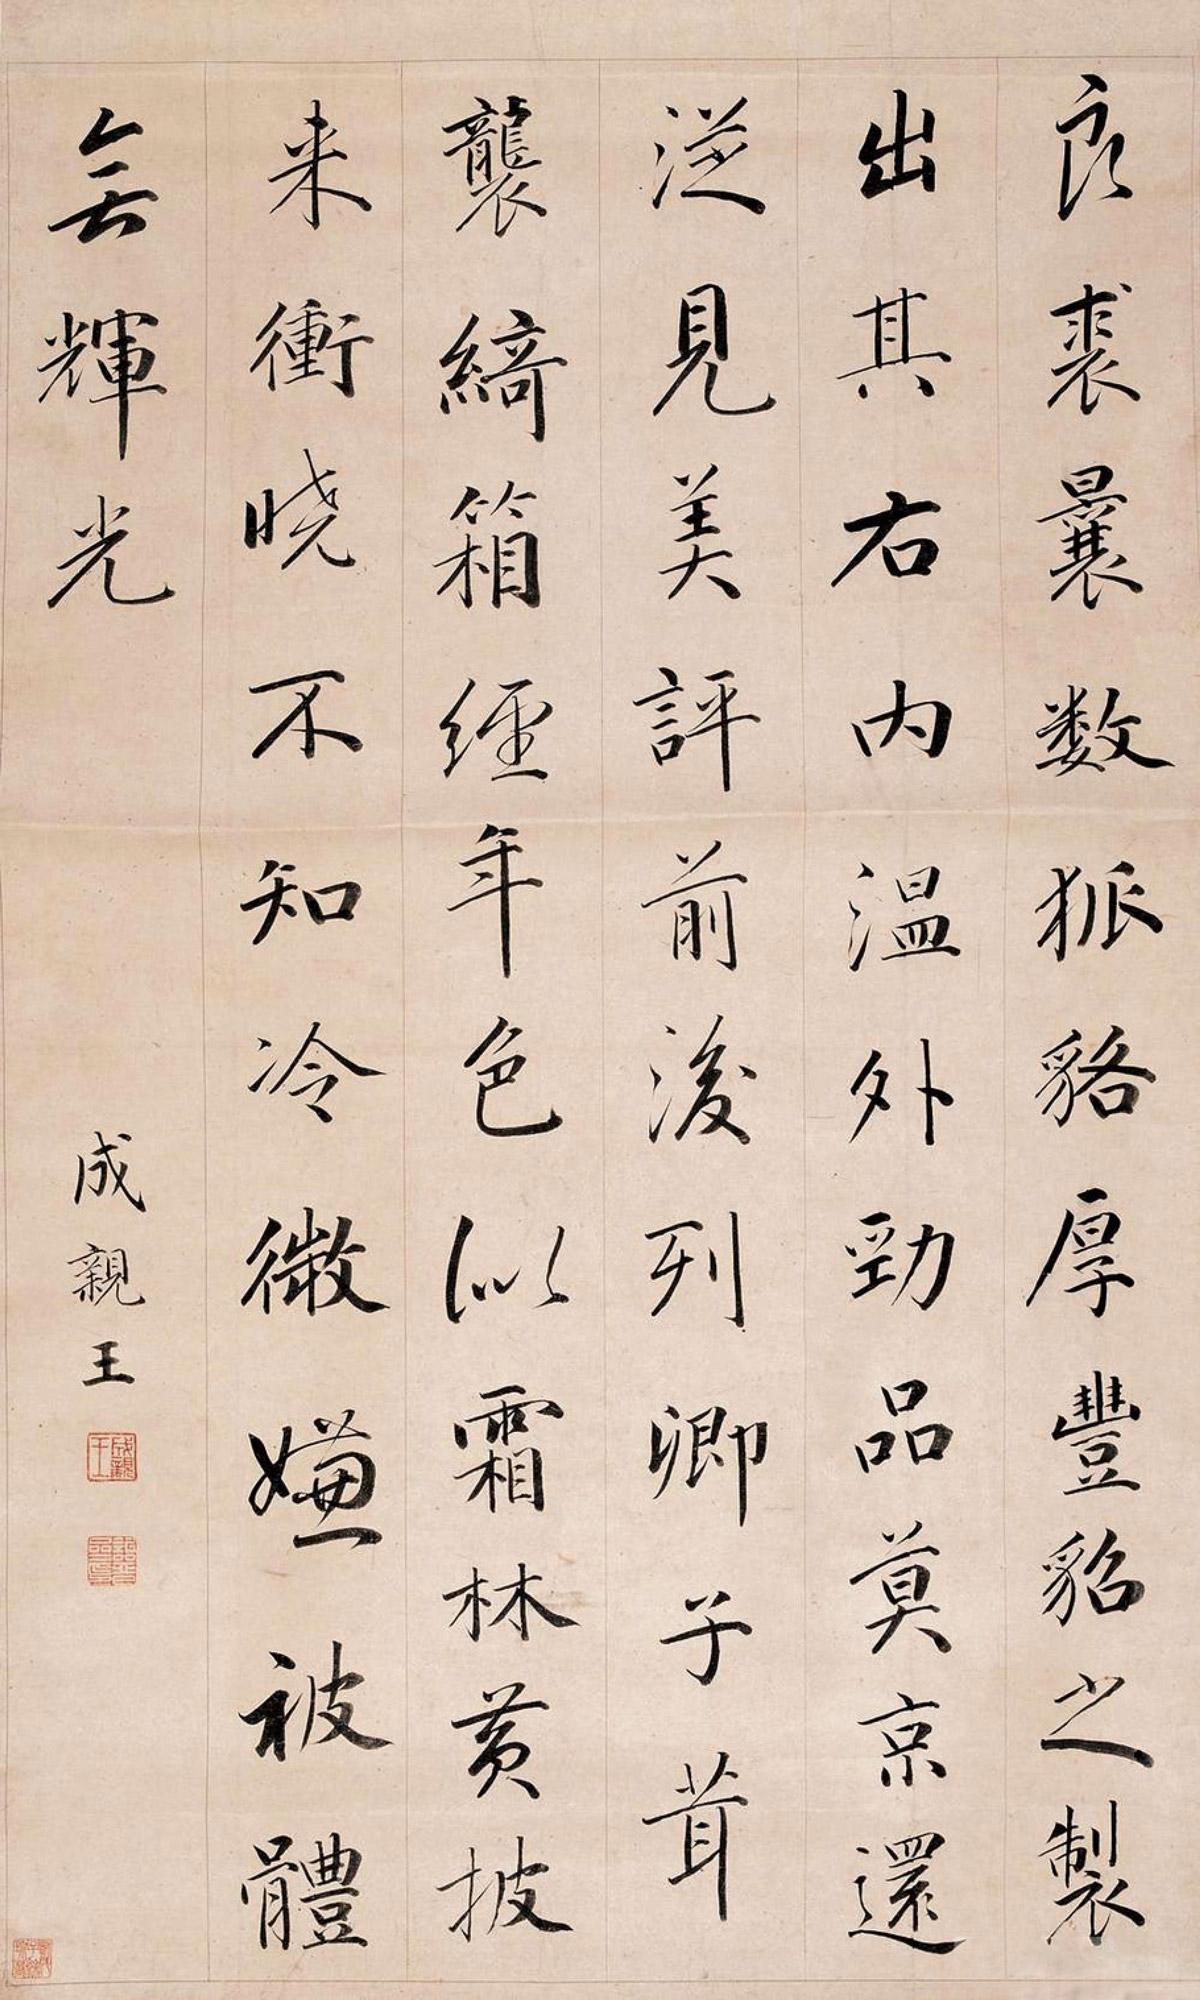 良裘曩数狐貉厚豐貂之製
出其右内温外勁品莫京還
從見美評前後列卿子茸
襲綺箱經年色似霜林黄披
来衝曉不知冷微嫌被體
無輝光
成親王
成親王